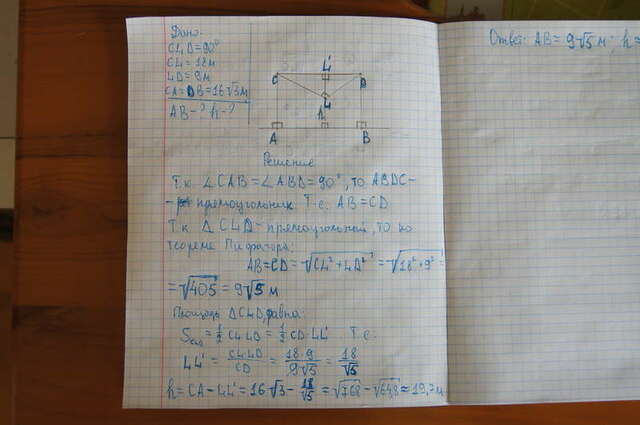 Дано:
CL,D=90°
CL = 18м
LD = 9м
CA=DB=16√3м
AB-? h-?
C L' D
L
h
A B
Решение
Т.к. ∠CAB=∠ABD=90°, то ABDC-
- прямоугольник. Т.е. AB=CD.
Т.к. △CLD- прямоугольный, то по
теореме Пифагора:
AB=CD=√CL²+LD² = √18²+9² =
=√405 = 9√5 м
Площадь △CLD, равна:
S = 1/2 CL·LD = 1/2 CD·LL' Т.е.
LL' = CL·LD/CD = 18·9/9√5 = 18/√5
h=CA-LL'=16√3-18/√5=√768-√64,8≈19,7м
Ответ: AB = 9√5 м; h≈